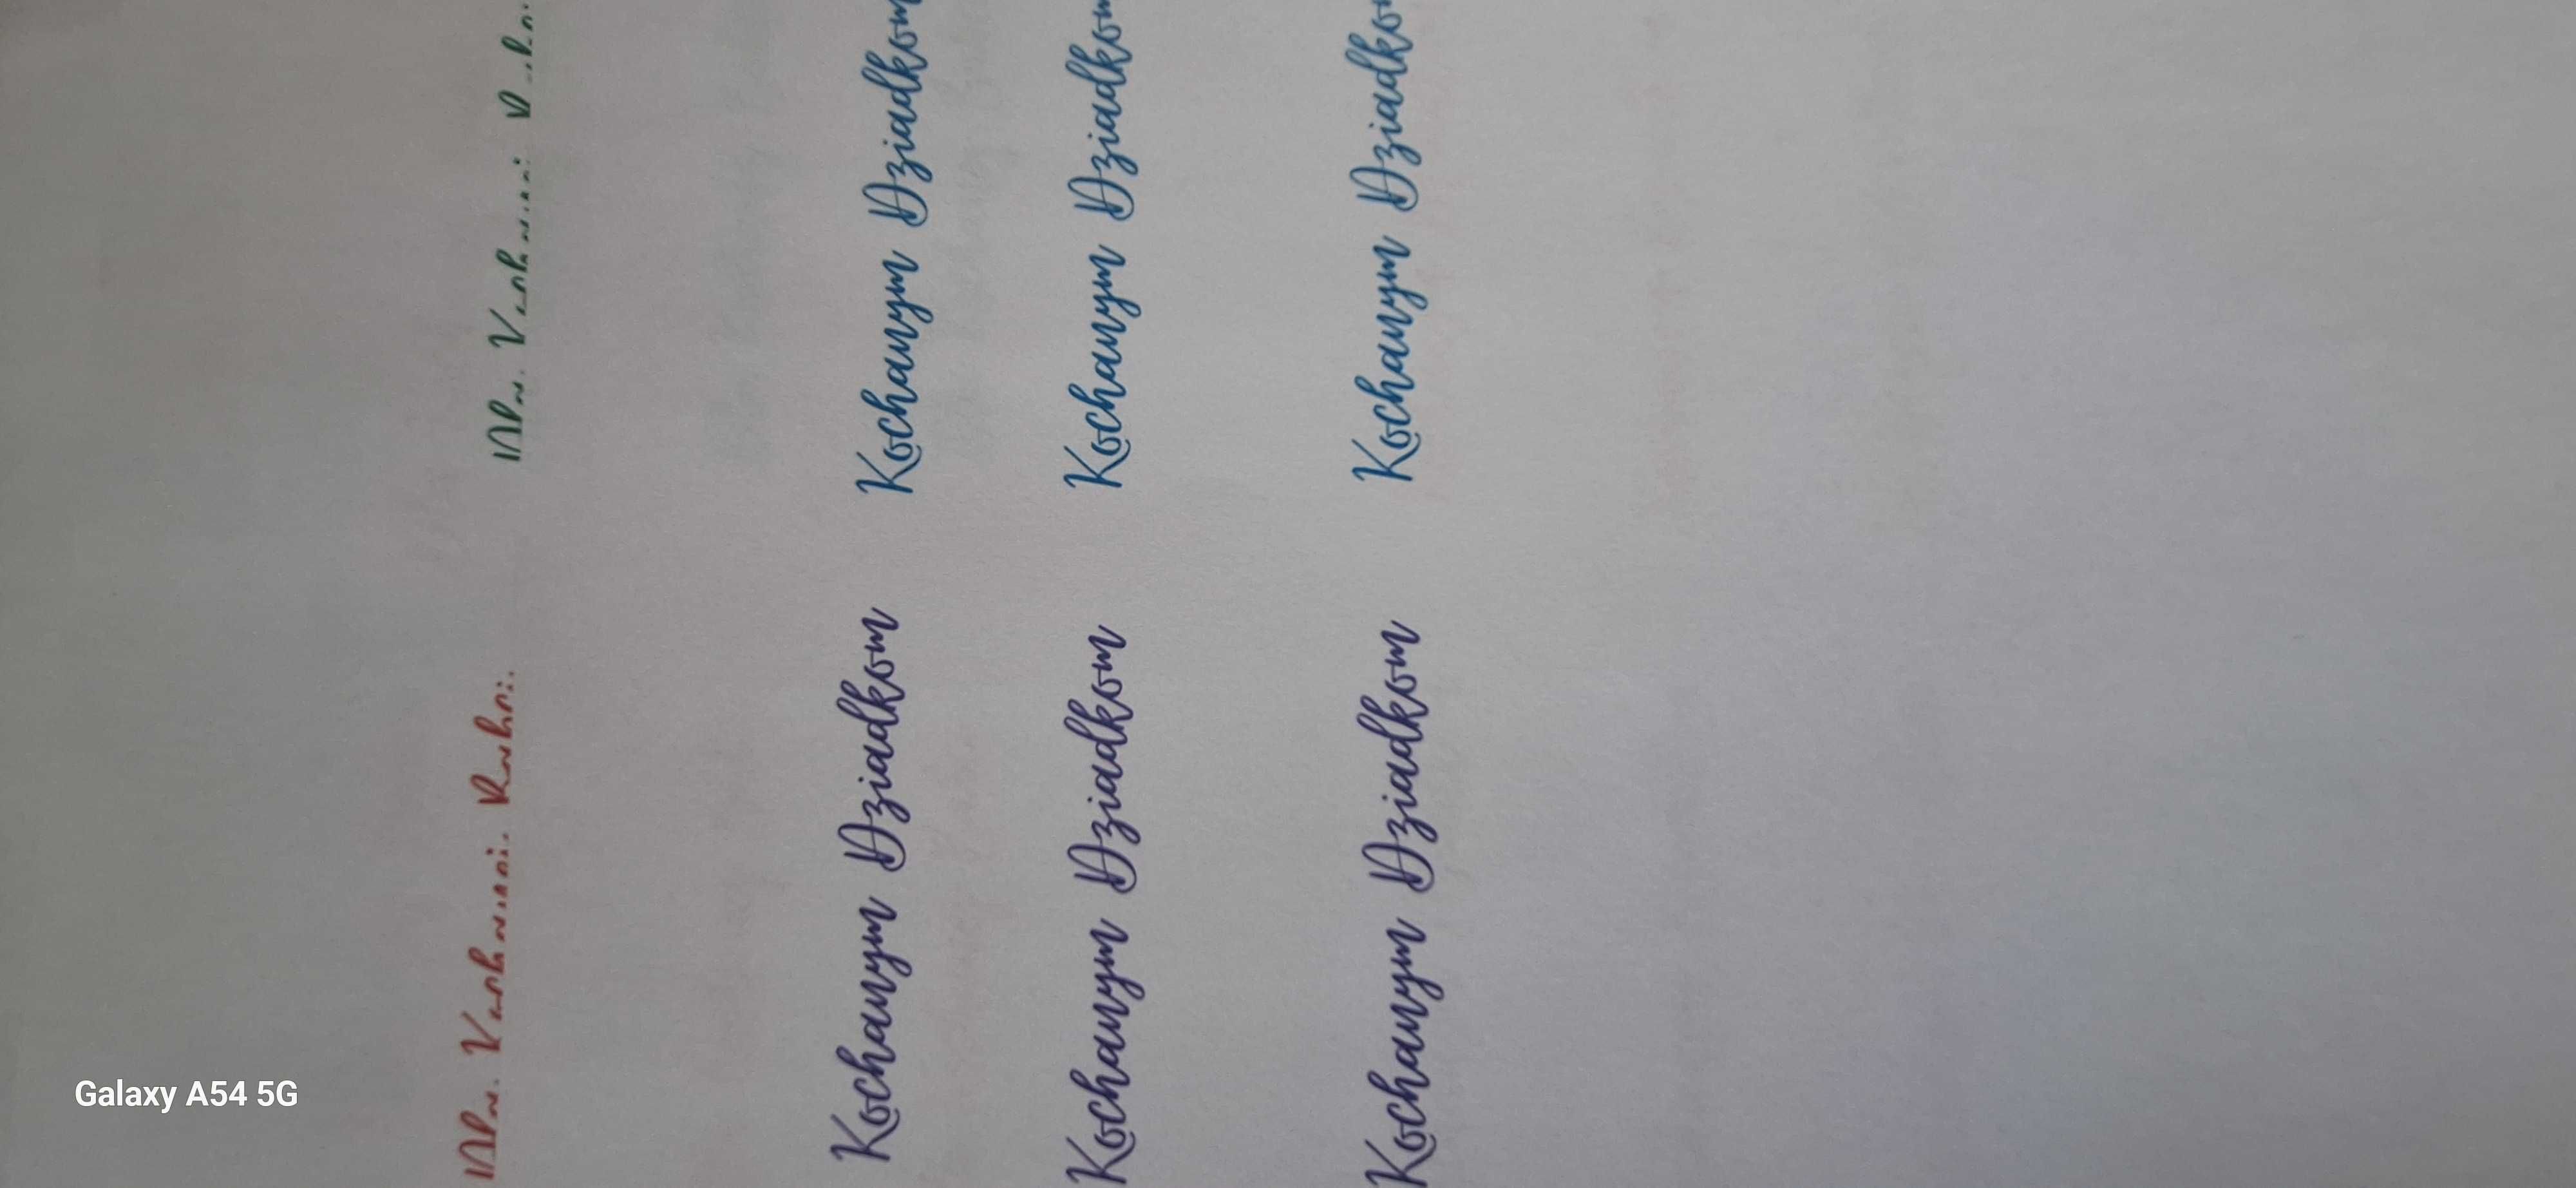 Kochanym Dziadkom Kochanym Dziadkom
Kochanym Dziadkom Kochanym Dziadkom
Kochanym Dziadkom Kochanym Dziadkom
Galaxy A54 5G